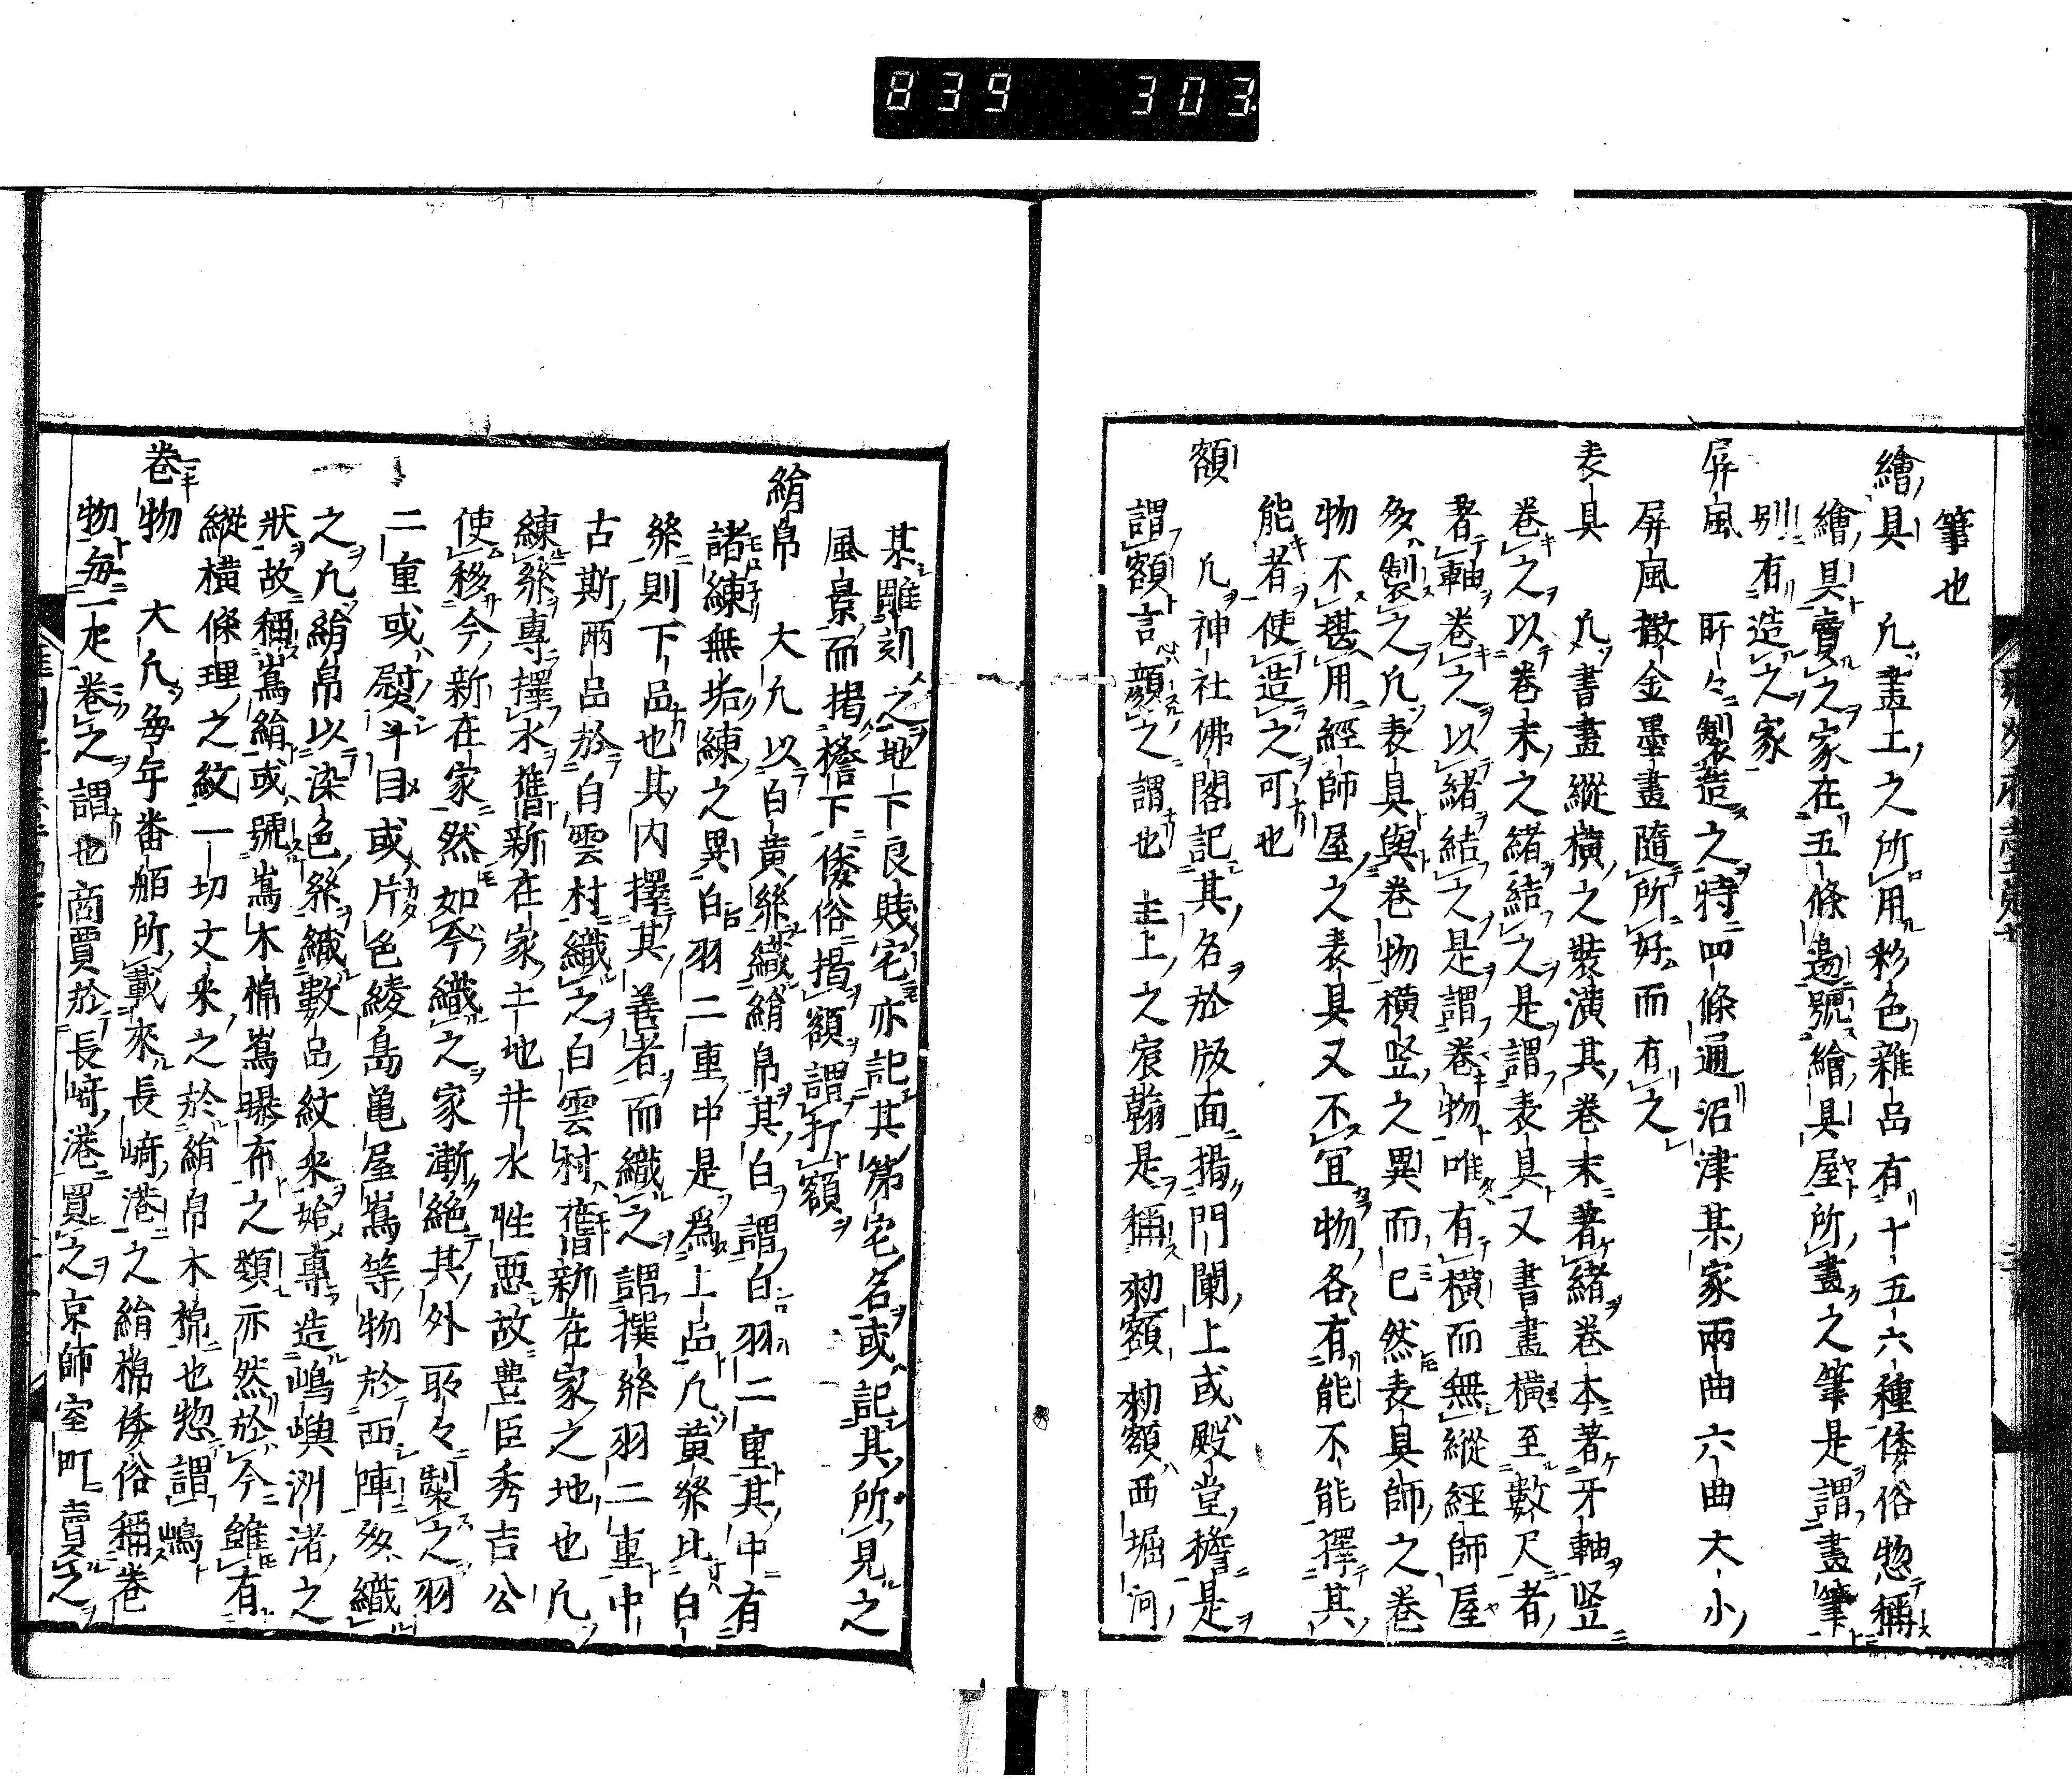 839 303
筆也
繪具 凢畫工之所用彩色雜品有十五六種倭俗惣稱
繪具賣之家在五條邊號繪具屋所畫之筆是謂畫筆
別有造之家
屏風 所々製造之特四條通沼津某家兩曲六曲大小
屏風撒金墨畫隨所好而有之
表具 凢書畫縱横之裝潢其卷末著緒卷本著牙軸竪
卷之以卷末之緒結之是謂表具又書畫横至數尺者
著軸卷之以緒結之是謂卷物唯有横而無縱經師屋
多製之凢表具與卷物横竪之異而已然表具師之卷
物不堪用經師屋之表具又不宜物各有能不能擇其
能者使造之可也
額 凢神社佛閣記其名於版面揭門闌上或殿堂檐是
謂額言顔之謂也 主上之宸翰是稱勑額勑額西堀河
某雕刻之地下良賎宅亦記其第宅名或記其所見之
風景而揭檐下倭俗揭額謂打額
絹帛 大凢以白黄絲織絹帛其白謂白羽二重其中有
諸練無垢練之異白羽二重中是爲上品凢黄絲比白
絲則下品也其内擇其善者而織之謂撰絲羽二重中
古斯兩品於白雲村織之白雲村舊新在家之地也凢
練絲專擇水舊新在家土地井水性悪故豊臣秀吉公
使移今新在家然如今織之家漸絶其外所々製之羽
二重或熨斗目或片色綾島亀屋嶌等物於西陣多織
之凢絹帛以染色絲織數品紋來始專造嶋嶼洲渚之
狀故稱嶌絹或號嶌木棉嶌曝布之類亦然於今雖有
縱横條理之紋一切文来之於絹帛木棉也惣謂嶋
卷物 大凢毎年番舶所載來長﨑港之絹棉倭俗稱卷
物毎一疋卷之謂也商賈於長﨑港買之京師室町賣之